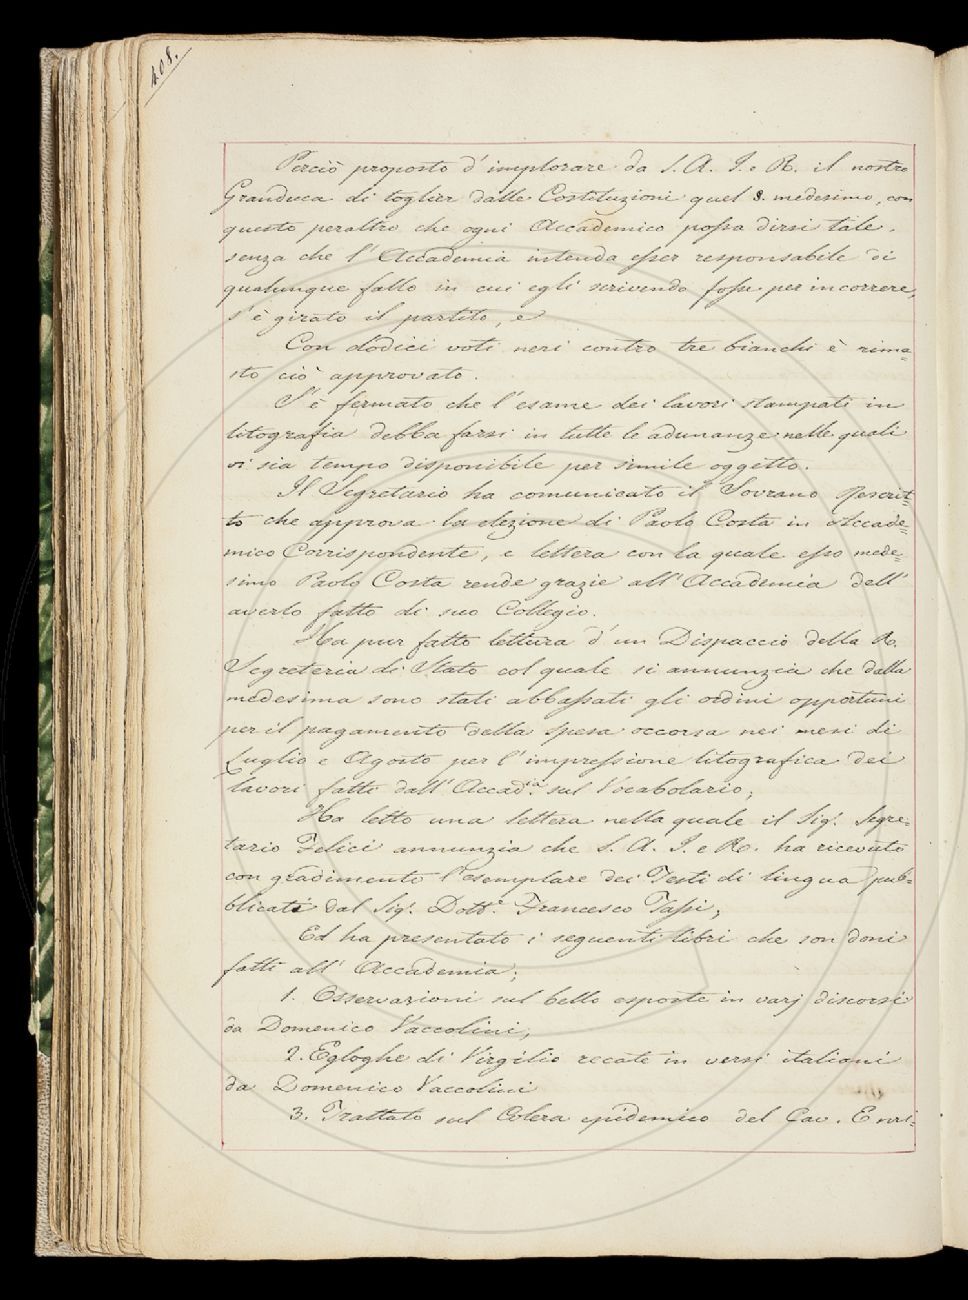 408.
Perciò proposto d'implorare da S. A. I. e R. il nostro
Granduca di toglier dalle Costituzioni quel §. medesimo, con
questo peraltro che ogni Accademico possa dirsi tale,
senza che l'Accademia intenda esser responsabile di
qualunque fallo in cui egli scrivendo fosse per incorrere,
s'è girato il partito, e
Con dodici voti neri contro tre bianchi è rima=
sto ciò approvato.
S'è fermato che l'esame dei lavori stampati in
litografia debba farsi in tutte le adunanze nelle quali
vi sia tempo disponibile per simile oggetto.
Il Segretario ha comunicato il Sovrano Rescrit=
to che approva la elezione di Paolo Costa in Accade=
mico Corrispondente, e lettera con la quale esso mede=
simo Paolo Costa rende grazie all'Accademia dell'
averlo fatto di suo Collegio.
Ha pur fatto lettura d'un Dispaccio della R.
Segreteria di Stato col quale si annunzia che dalla
medesima sono stati abbassati gli ordini opportuni
per il pagamento della spesa occorsa nei mesi di
Luglio e Agosto per l'impressione litografica dei
lavori fatti dall'Accad.ia sul Vocabolario;
Ha letto una lettera nella quale il Sig.r Segre=
tario Felici annunzia che S. A. I. e R. ha ricevuto
con gradimento l'esemplare dei Testi di lingua pub=
blicati dal Sig.r Dott.e Francesco Tassi;
Ed ha presentato i seguenti libri che son doni
fatti all'Accademia;
1. Osservazioni sul bello esposte in varj discorsi
da Domenico Vaccolini;
2. Egloghe di Virgilio recate in versi italiani
da Domenico Vaccolini
3. Trattato sul Colera epidemico del Cav. Enri=